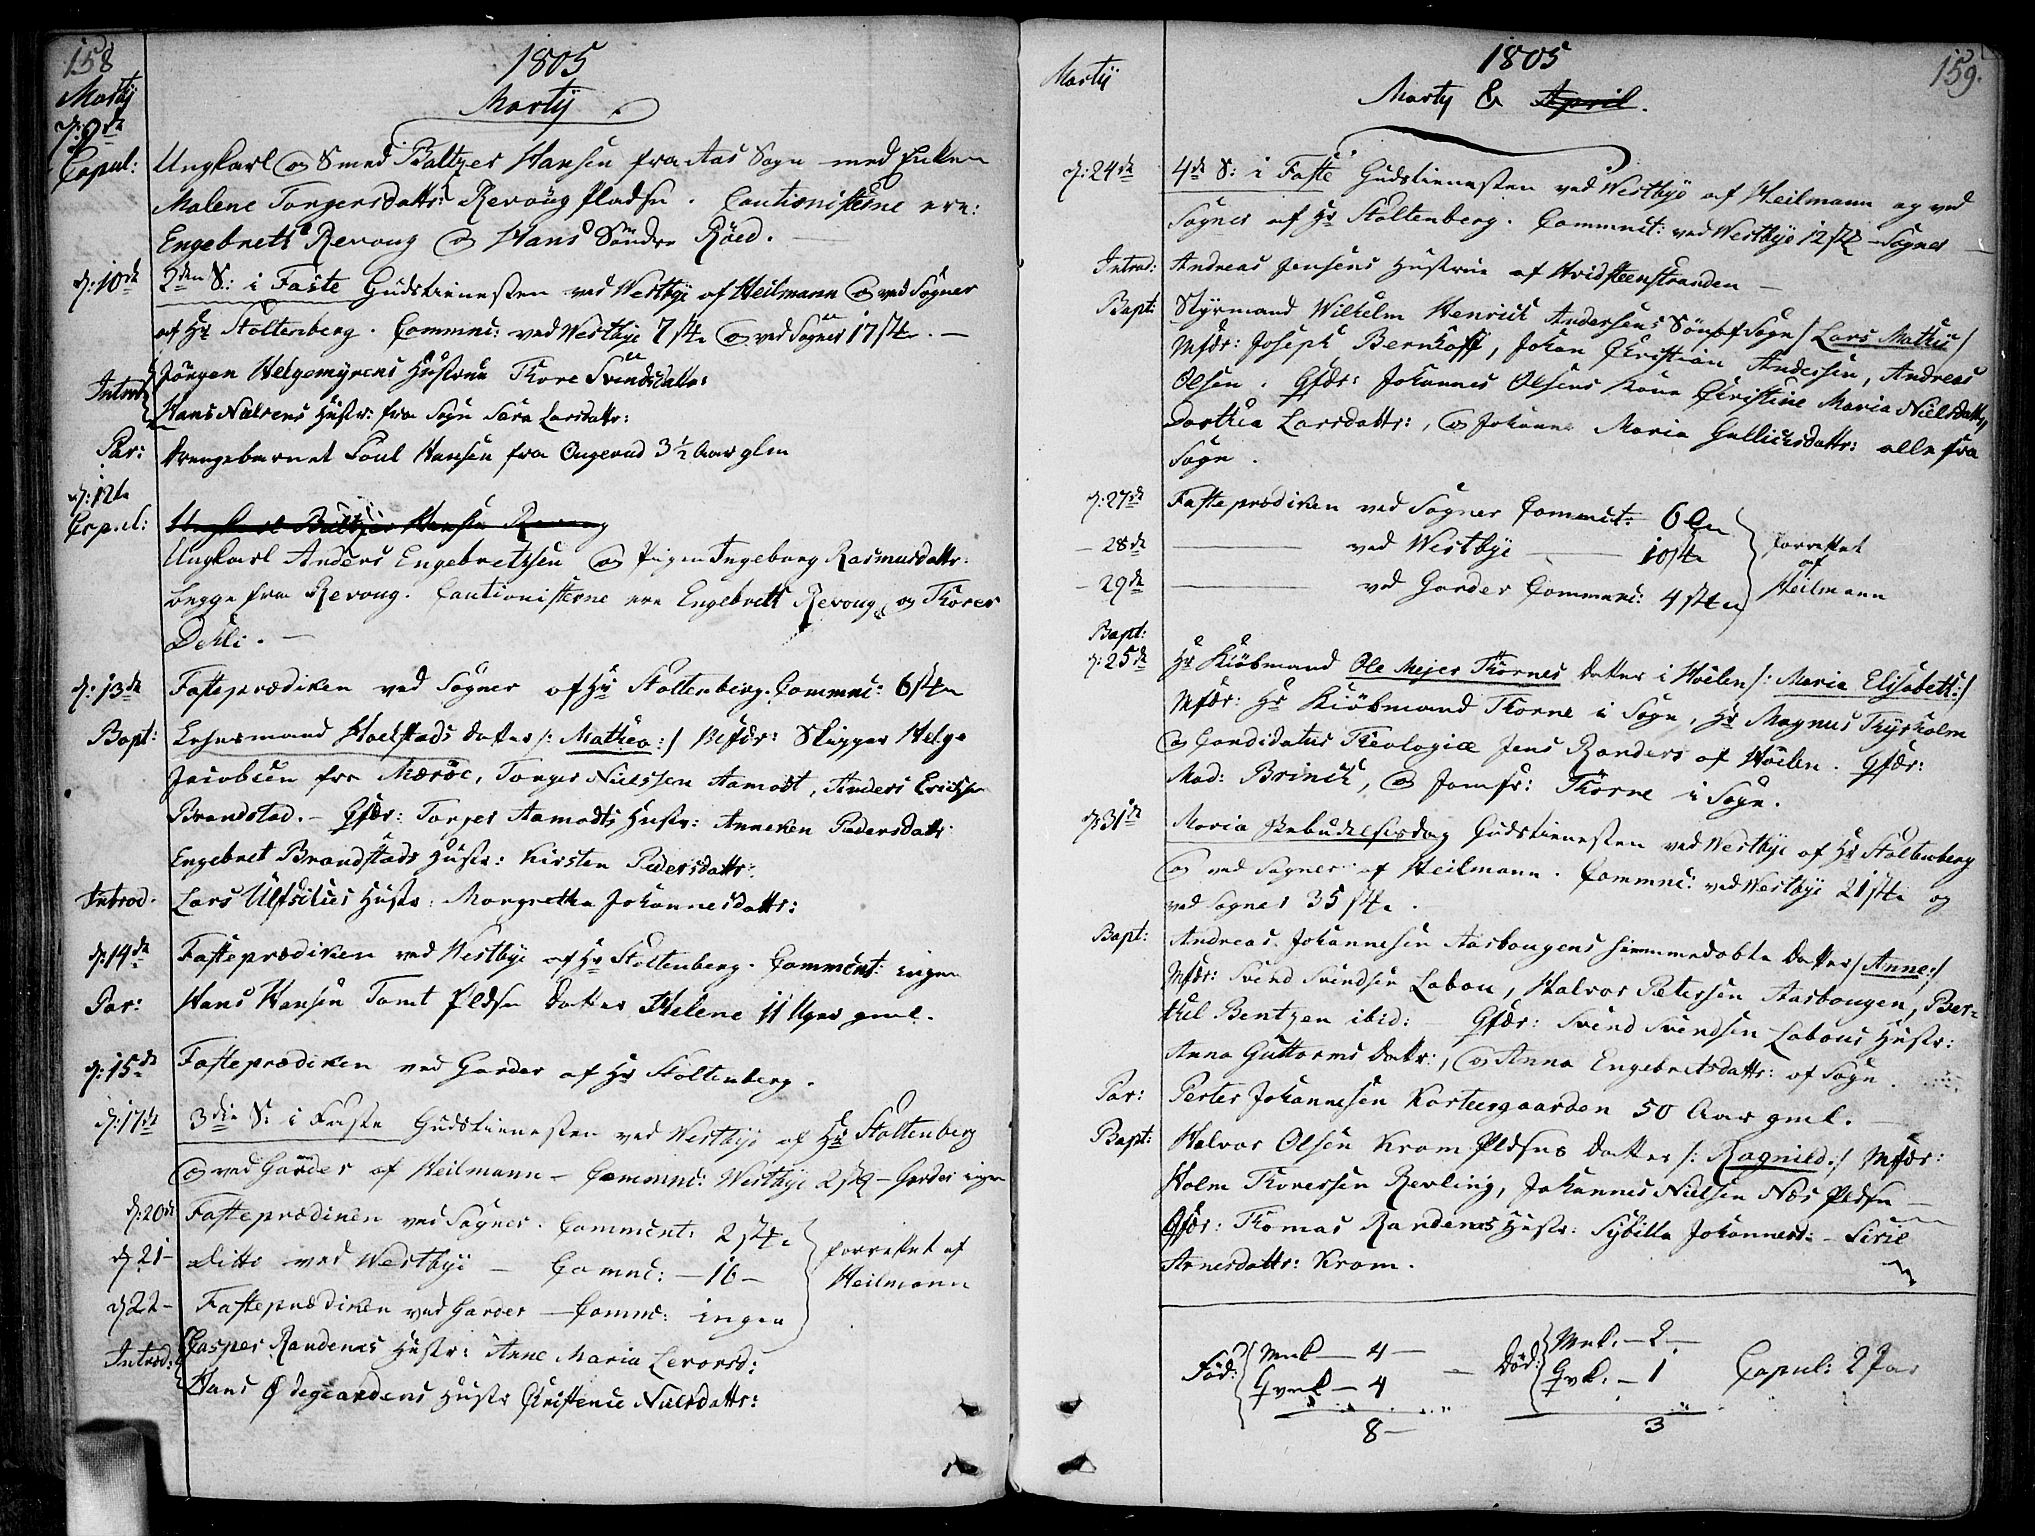 158
1805
Martÿ
Martÿ
d: 9de
Capul: Ungkarl og Smed Baltzer Hansen fra Aas Sogn med Enken
Malene Torgersdattr: Revoug pladsen. Cautionisterne ere:
Engebreth Revoug og Hans Söndre Röed.
d: 10de 2den S: i Faste Gudstienesten ved Westbÿe af Heilmann og ved Sogner
af Hr Stoltenberg. Communi: ved Westbye 7 stk og ved Sogner 17 stk. —
Introd: Jörgen Helgemÿrens Hustrue Thore Svendsdatter
Hans Nielsens Hustr: fra Sogn Sara Larsdattr:
Par: Drengebarnet Poul Hansen fra Ongerud 3 1/2 Aar glm
d: 12te
Copul: Ungkarl Baltzer Hansen Revoug
Ungkarl Anders Engebrethsen og Pigen Ingeborg Rasmusdattr:
begge fra Revoug. Cautionisterne ere Engebreth Revoug og Thorer
Dehli. —
d: 13de Fasteprædiken ved Sogner af Hr Stoltenberg. Communi: 6 stk
Bapt: Lehnsmand Hoelstads datter /: Mathea :/ Mfdr: Skipper Helge
Jacobsen fra Mæröe, Torger Nielssen Aamodt, Anders Ericksen
Brandstad. — Qfdr: Torger Aamodts Hustr: Anneken Pedersdattr:
Engebret Brandstads Hustr: Kirsten Pedersdattr:
Introd. Lars Ulfsitues Hustr: Margrethe Johannesdattr:
d: 14de Fasteprædiken ved Westbÿe af Hr Stoltenberg. Comment: ingen
Par: Hans Hansen Tomt Pldsn datter Helene 11 Uger gml.
d: 15de Fasteprædiken ved Garder af Hr Stoltenberg.
d: 17de 3die S: i Faste Gudstienesten ved Westbÿe af Hr Stoltenberg
og ved Garder af Heilmann — Communi: Westbÿe 2 stk — Garder ingen
d: 20de Fasteprædiken ved Sogner. Comment: 2 stk.
d 21 — Ditto ved Westbÿe — Communi: — 16 —
forrettet af
Heilmann
d 22 — Fasteprædiken ved Garder — Commu: ingen
Introd: Casper Randenes Hustr: Anne Maria Levorsd:
Hans Ödegaardens Hustr Christence Nielsdattr:
159.
1805
Martÿ
Marty & April.
d: 24de 4de S: i Faste Gudstienesten ved Westbye af Heilmann og ved
Sogner af Hr Stoltenberg. Communt: ved Westbÿe 12 stk — Sogner —
Introd: Andreas Jensens Hustrue af Hvidsteenstranden —
Bapt: Styrmand Wilhelm Henrich Andersens Sön af Sogn /: Lars Mathis :/
Mfdr: Joseph Bernhoft, Johan Christian Andersen, Andreas
Olsen. Qfdr: Johannes Olsens Kone Christine Maria Nielsdattr,
Dorthea Larsdattr:, og Johanne Maria Gullichsdattr: alle fra
Sogn.
d: 27de Fasteprædiken ved Sogner Communt: 6
— 28de — ved Westbÿe — 10 stk
forrettet
af
Heilmann
— 29de — ved Garder Communi: 4 stk
Bapt:
d: 25de Hr Kiöbmand Ole Mejer Thornes datter i Hölen /: Maria Elisabeth :/
Mfdr: Hr Kiöbmand Thorne i Sogn, Hr Magnus Thÿrholm
og Candidatus Theologiæ Jens Randers af Hölen. Qfdr:
Mad: Brinch, og Jomfr: Thorne i Sogn.
d 31te Maria Bebudelsesdag Gudstienesten ved Westbÿe af Hr Stoltenberg
og ved Sogner af Heilmann. Communi: ved Westbÿe 21 stk og
ved Sogner 35 stk.
Bapt: Andreas Johannesen Aasbougens hiemmedöbte datter /: Anne :/
Mfdr: Svend Svendsen Labou, Halvor Petersen Aasbougen, Ber-
thel Bentzen ibid: — Qfdr: Svend Svendsen Labous Hustr:
Anna Guttorms datr:, og Anna Engebretsdattr: af Sogn.
Par: Peter Johannesen Kortersgaarden 50 Aar gml.
Bapt: Halvor Olsen Krom Pldsns datter /: Ragnild :/ Mfdr:
Holm Thoressen Revling, Johannes Nielsen Næs Pldsn —
Qfdr: Thomas Randenes Hustr: Sÿbilla Johannesd: — Sirie
Arnesdattr: Krom.
Föd: Mnk — 4 —
Qvnk — 4
8 —
Död: Mnk. — 2 —
Qvk. — 1
3
Copul: 2 Par